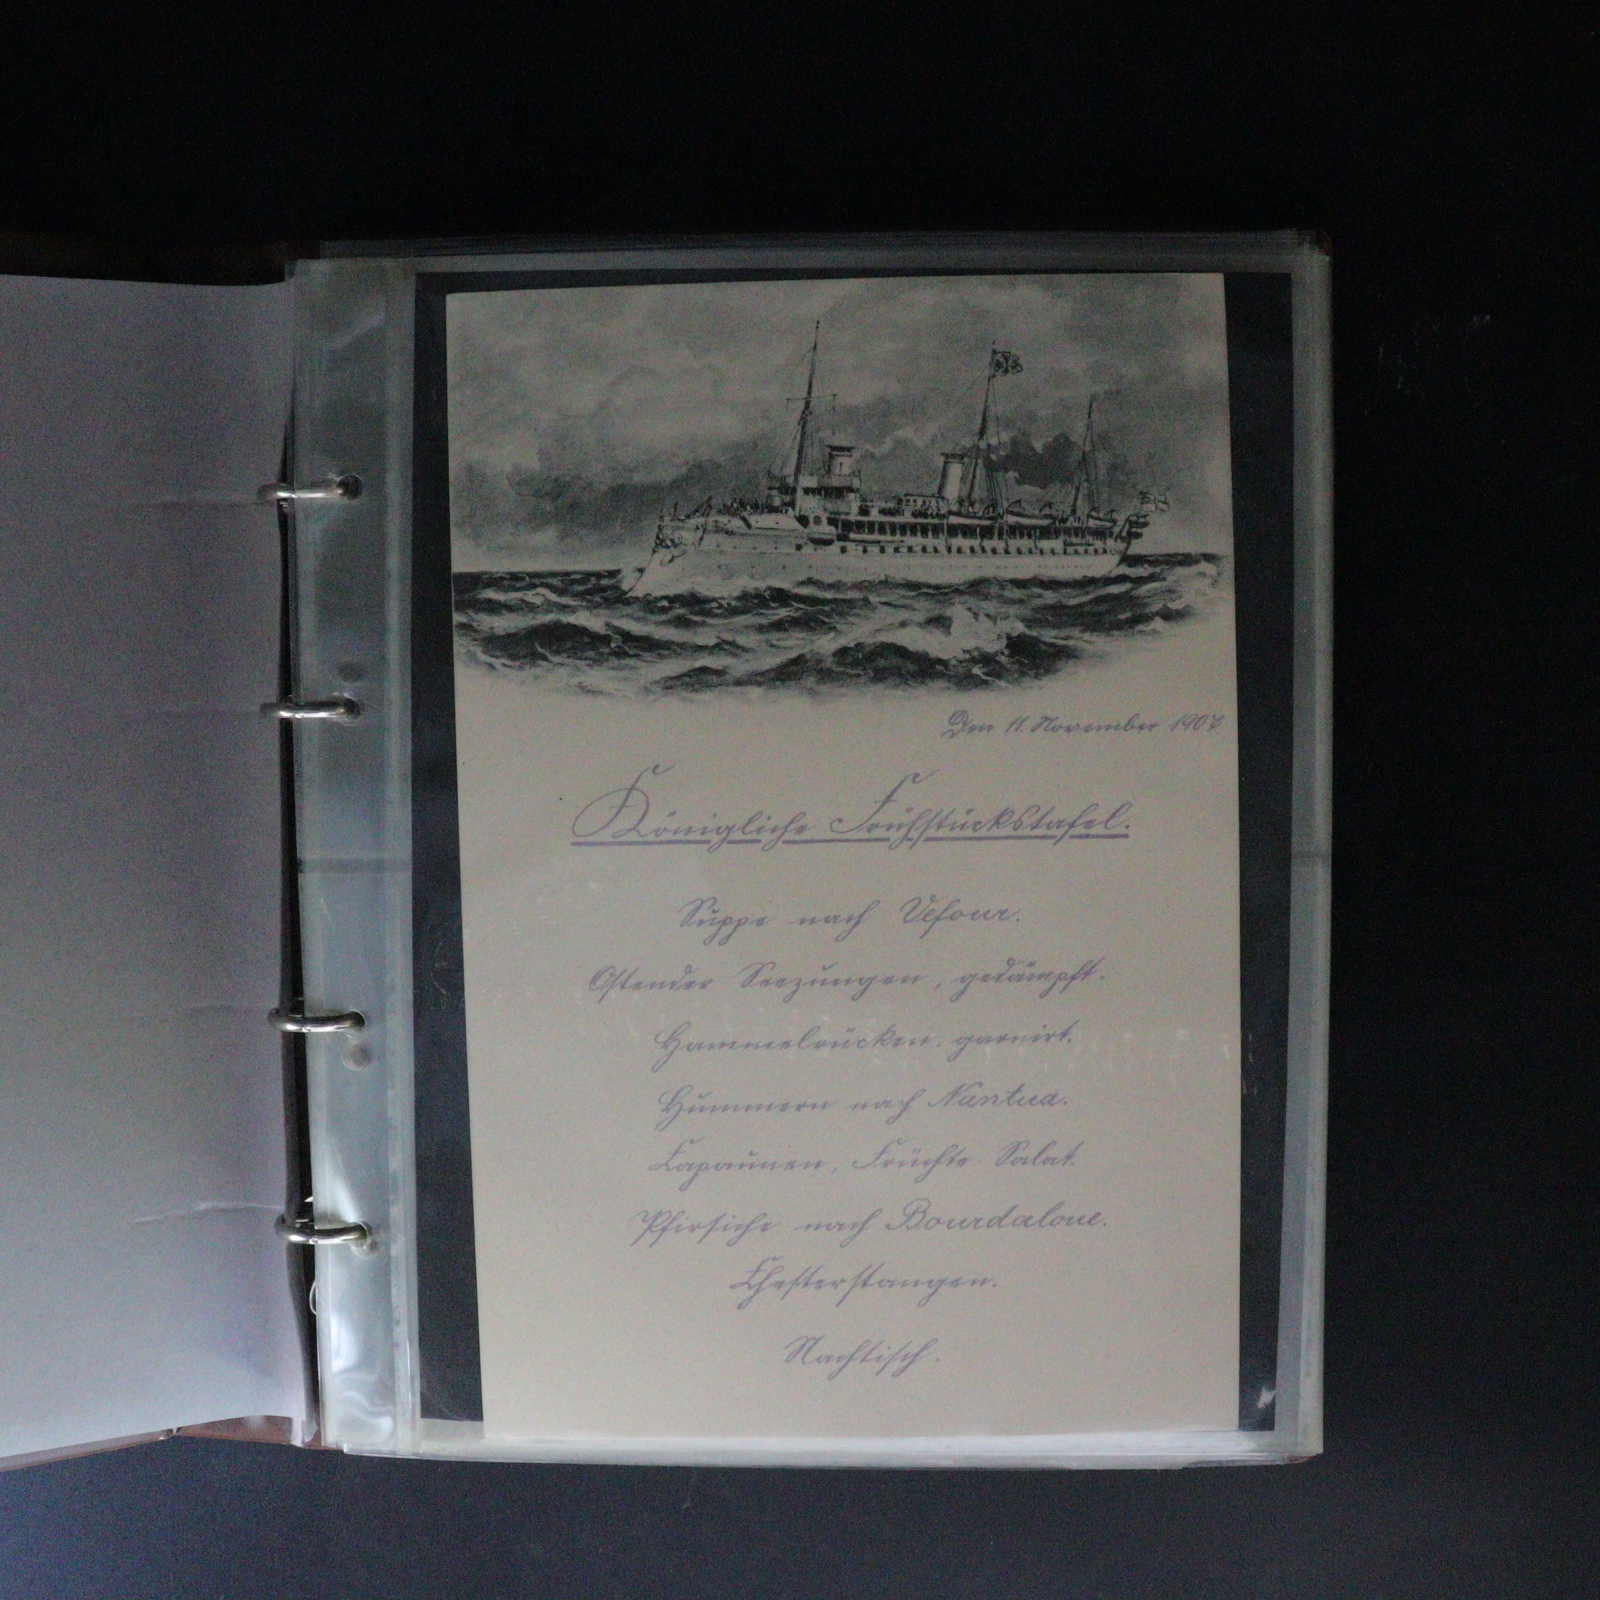 Den 11. November 1907
Königliche Frühstückstafel.
Suppe nach Vefour.
Ostender Seezungen, gedämpft.
Hammelrücken, garnirt.
Hummern nach Nantua.
Capaunen, Früchte Salat.
Pfirsiche nach Bourdaloue.
Chesterstangen.
Nachtisch.